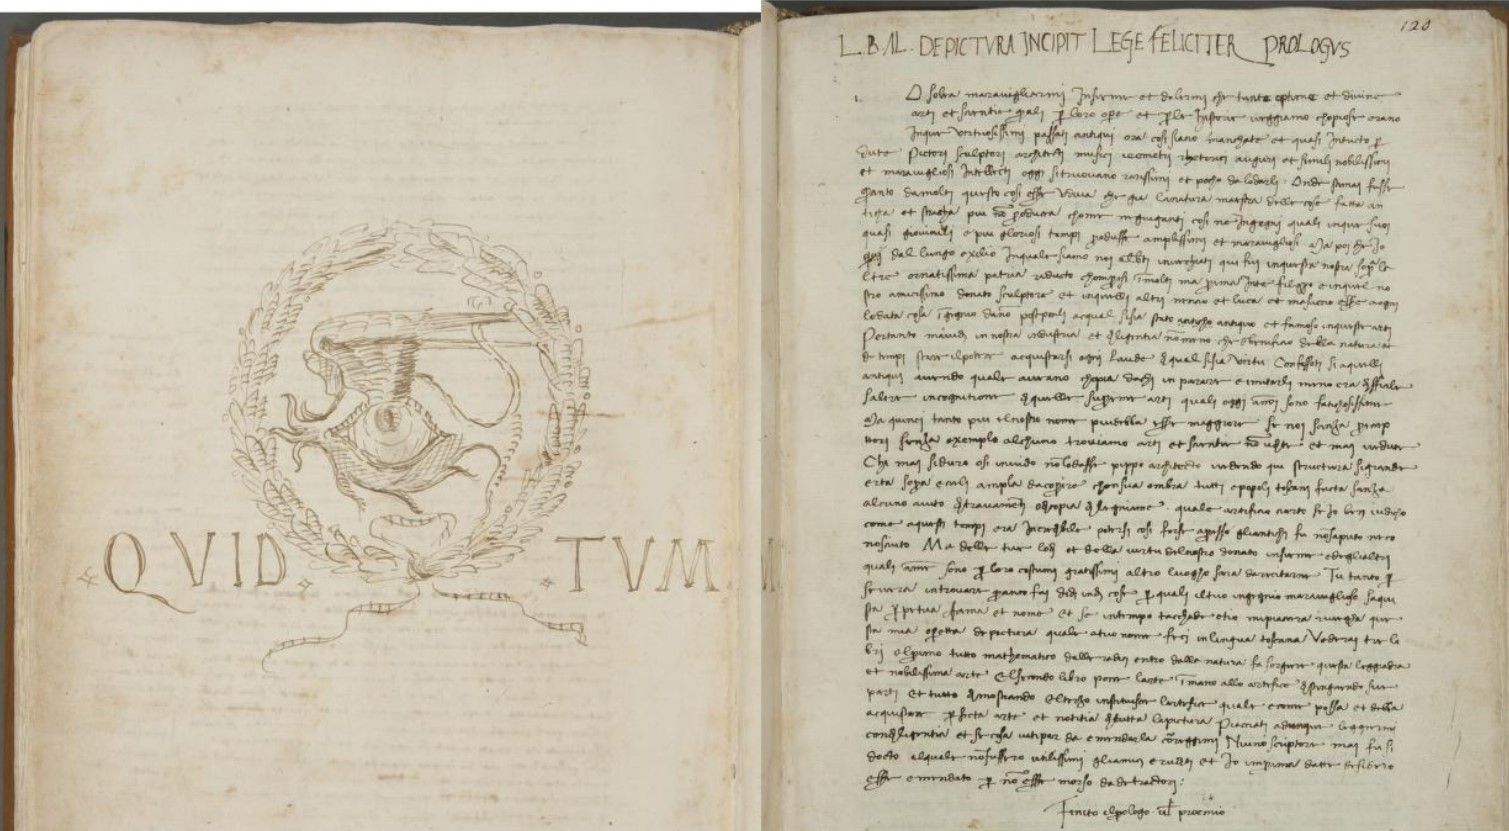 QVID TVM
120
L. B. AL. DE PICTVRA INCIPIT LEGE FELICITER PROLOGVS
O solea maravigliarmi Insieme et dolermi che tante optime et divine
arti et scientie quali p loro ope et p le historie veggiamo chopiose erano
inque virtuosissimi passati antiqui ora cosi siano manchate et quasi intucto p
dute Pictori sculptori architecti musici ieometri rhetorici auguri et simili nobilissimi
et maravigliosi Intellecti oggi si truovano rarissimi et pocho da lodarli Onde stimai fusse
quanto da molti questo cosi esse Udiva che gia la natura maestra delle cose fatta an
ticha et straccha piu no producea chome ne giuganti cosi ne Ingegni quali inque suoi
quasi giovinili e piu gloriosi tempi produsse amplissimi et maravigliosi Ma poi che Io
dal lungo exilio Inquale siamo noi alberti invecchiati qui fui inquesta nostra sopra la
ltre ornatissima patria riducto chompresi i molti ma prima inte filippo e inquel no
stro amicissimo donato sculptore et inquelli altri nencio et luca et masaccio esse a ogni
lodata cosa ingegno da no postporli acqual si sia stato antiquo et famoso inqueste arti
Pertanto mavidi in nostra industria et diligentia no meno che benificio della natura et
de tempi stare il potere acquistarsi ogni laude di qual si sia virtu Confessoti si a quelli
antiqui avendo quale aveano chopia da chi inparare e imitarli meno era difficile
salire in cognitione di quelle supreme arti quali oggi annoi sono faticosissime
Ma quinci tanto piu el nostro nome piu debba esse maggiore se noi sanza precep
tori senza exemplo alchuno troviamo arti et scientie no udite et mai vedute
Chi mai si duro o si invido no lodasse pippo architecto vedendo qui structura si grande
erta sopra e cieli ampla da coprire chon sua ombra tutti e popoli toscani facta sanza
alcuno aiuto di travamenti o di copia di legniame quale artificio certo se Io ben iudico
come a questi tempi era incredibile potersi cosi forse appresso gli antichi fu no saputo ne co
nosciuto Ma delle tue lodi et della virtu del nostro donato insieme e degli altri
quali a me sono p loro costumi gratissimi altro luogho sara da recitarne Tu tanto p
severa in trovare quanto fai di di in di cose p quali il tuo ingegnio maraviglioso saqui
sta ppetua fama et nome et se in tempo taccade otio mi piacera rivegha que
sta mia operetta de pictura quale a tuo nome feci in lingua toscana Vederai tre li
bri el primo tutto mathematico dalle radici entro dalla natura fa sorgere questa leggiadra
et nobilissima arte El secondo libro pone larte i mano allo artefice distinguendo sue
parti et tutto dimostrando El terzo instituisce lartefice quale e come possa et debba
acquistare pfecta arte et notitia di tutta la pictura Piacciati adunque leggermi
con diligentia et se cosa vi ti par da emendarla correggimi Niuno scriptore mai fu si
docto al quale no fussero utilissimi gli amici eruditi et Io in prima da te desidero
esse emendato p no esse morso da detractori
Finito el plogo ul proemio